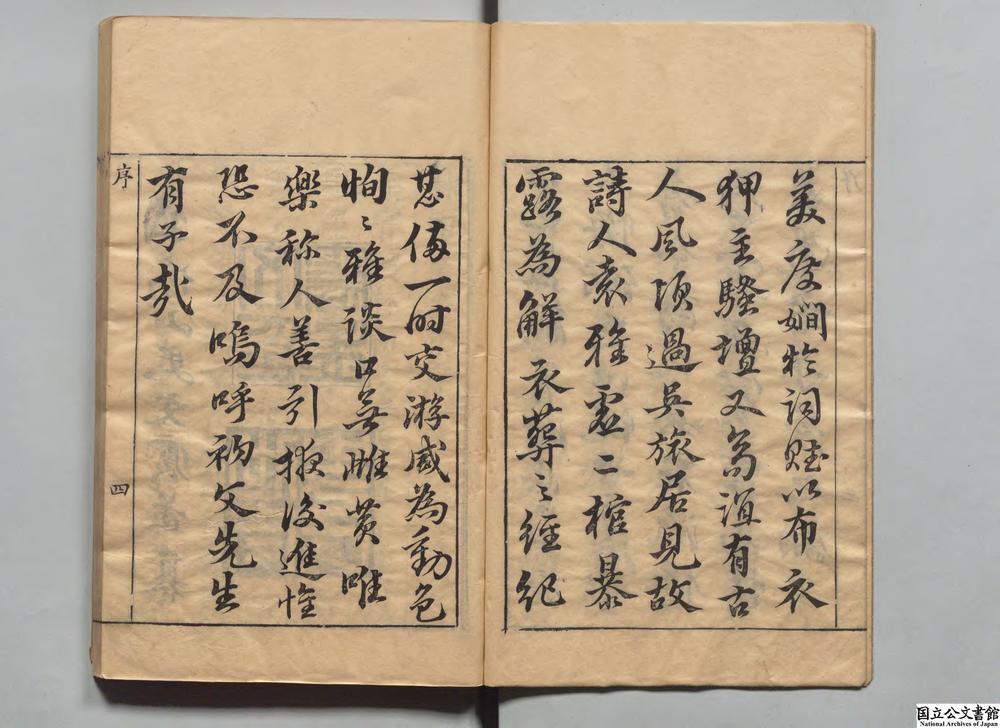 美度嫺於詞賦以布衣
狎主騷壇又篤誼有古
人風頃過吳旅居見故
詩人袁雅虛二棺暴
露為解衣葬之經紀
甚偹一時交游咸為動色
恂〻雅談口無雌黃唯
樂称人善引掖後進惟
恐不及嗚呼礿父先生
有子哉
序
四
国立公文書館
National Archives of Japan